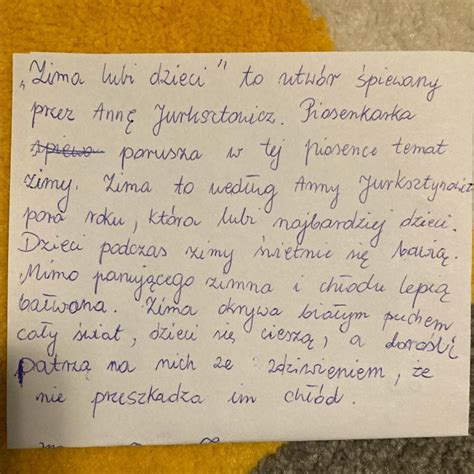 „Zima lubi dzieci" to utwór śpiewany
przez Annę Jurksztowicz. Piosenkarka
śpiewa porusza w tej piosence temat
zimy. Zima to według Anny Jurksztynowicz
pora roku, która lubi najbardziej dzieci.
Dzieci podczas zimy świetnie się bawią.
Mimo panującego zimna i chłodu lepią
bałwana. Zima okrywa białym puchem
cały świat, dzieci się cieszą, a dorośli
patrzą na nich ze zdziwieniem, że
nie przeszkadza im chłód.